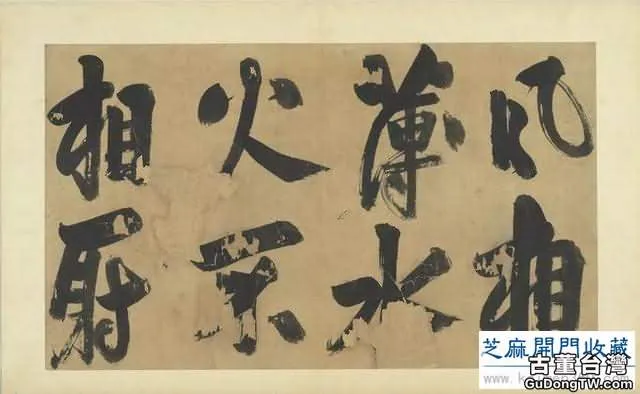 風相
薄水
火不
相射
芝麻開門收藏
古董台灣
GuDongTW.com